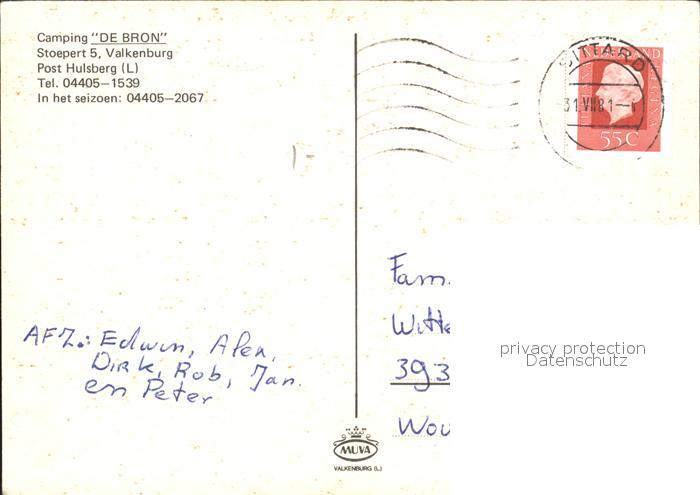 Camping "DE BRON"
Stoepert 5, Valkenburg
Post Hulsberg (L)
Tel. 04405—1539
In het seizoen: 04405—2067
SITTARD
31.VII.81—
NEDERLAND
JULIANA REGINA
55C
1-
Fam.
Witte
393
Wou
AFZ.: Edwin, Alex,
Dirk, Rob, Jan.
en Peter
privacy protection
Datenschutz
MUVA
VALKENBURG (L.)